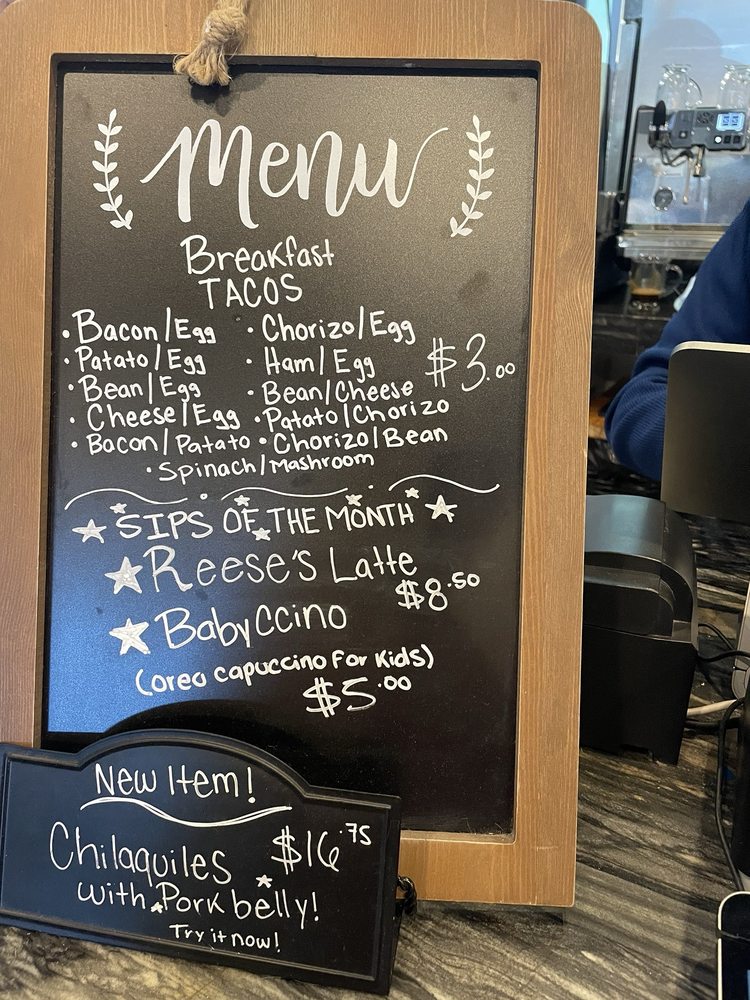 Menu
Breakfast
TACOS
• Bacon/Egg • Chorizo/Egg
• Patato/Egg • Ham/Egg $3.00
• Bean/Egg • Bean/Cheese
• Cheese/Egg • Patato/Chorizo
• Bacon/Patato • Chorizo/Bean
• Spinach/Mashroom
SIPS OF THE MONTH
Reese's Latte
$8.50
Babyccino
(oreo capuccino for kids)
$5.00
New Item!
Chilaquiles $16.75
with Pork belly!
Try it now!